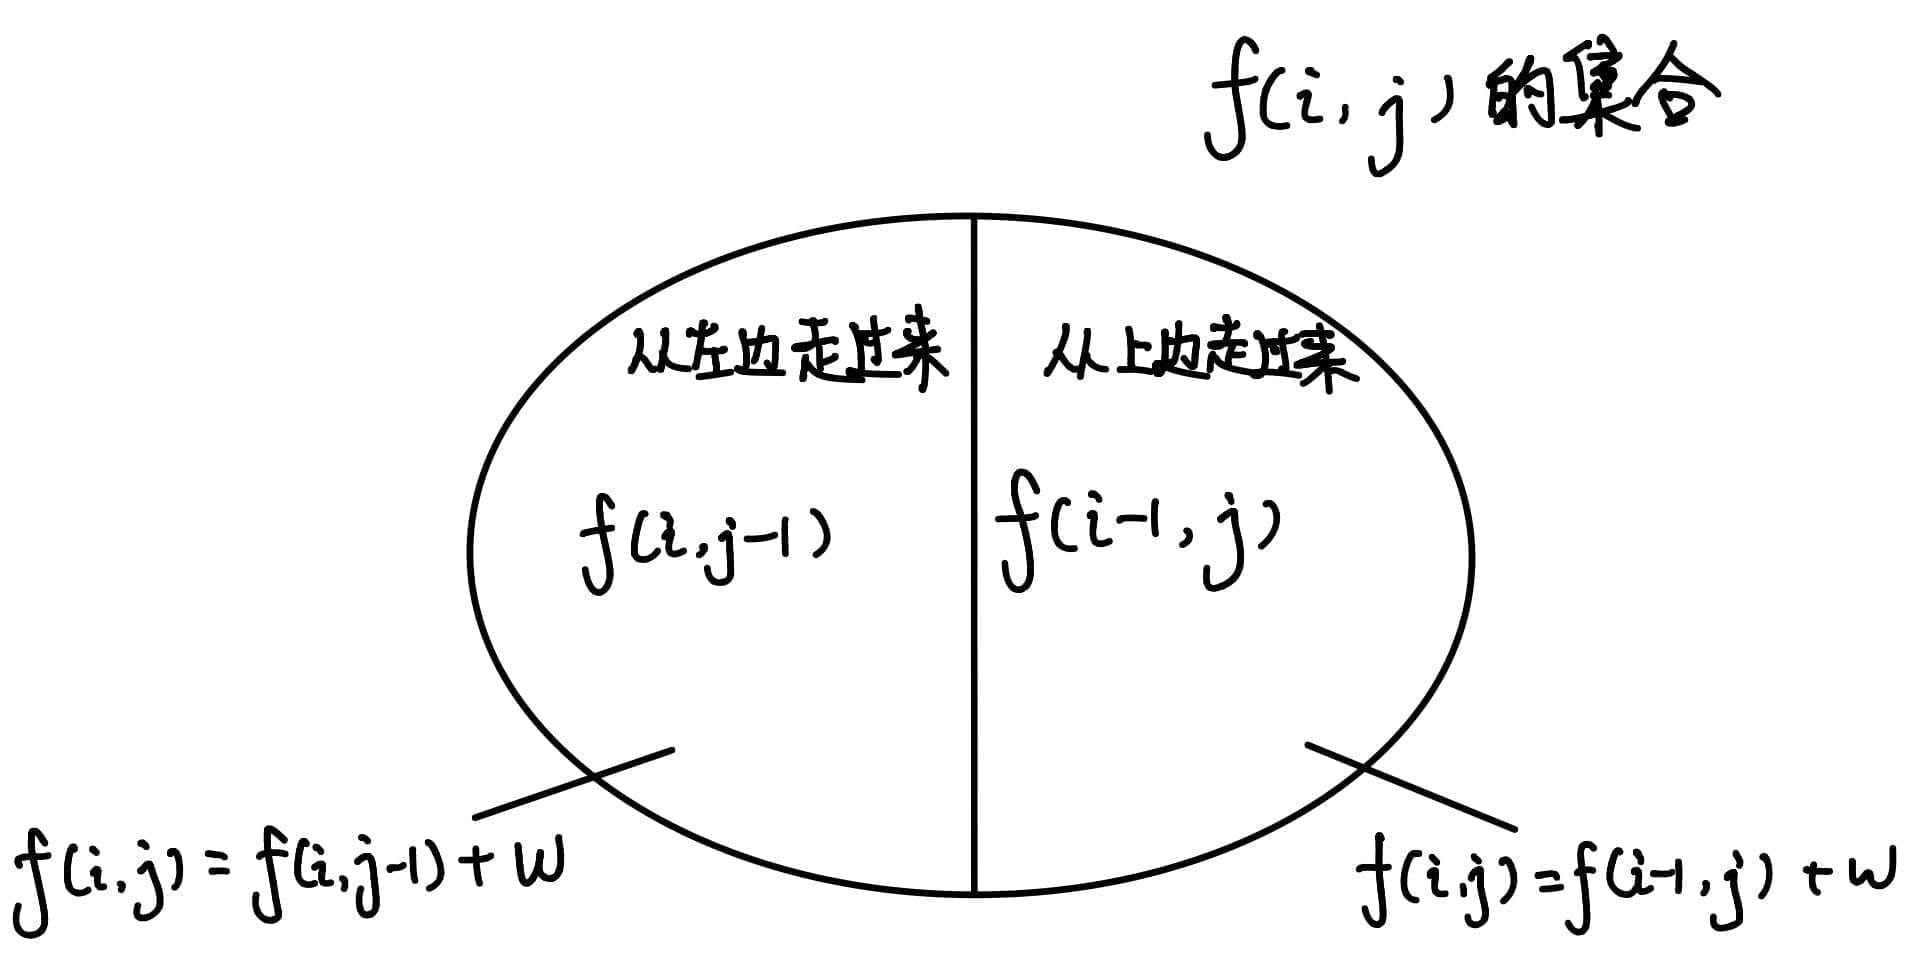 f(i,j)的集合
从左边走过来
从上边走过来
f(i,j-1)
f(i-1,j)
f(i,j)=f(i,j-1)+w
f(i,j)=f(i-1,j)+w